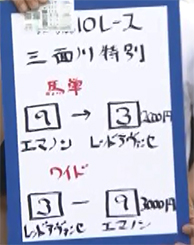 10レース
三面川特別
馬単
9 → 3 200円
エマノン レッドアヴァンセ
ワイド
3 - 9 3000円
レッドアヴァンセ エマノン